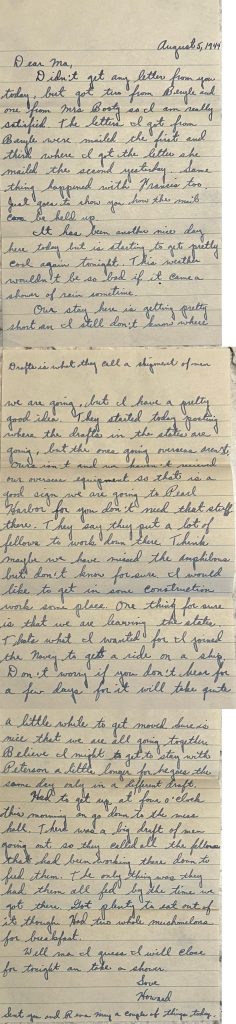 August 5, 1944
Dear Ma,
Didn't get any letter from you
today, but got two from Beryle and
one from Mrs Booty so I am really
satisfied. The letters I got from
Beryle were mailed the first and
third where I got the letter she
mailed the second yesterday. Same
thing happened with Francis too.
Just goes to show you how the mail
can be held up.
It has been another nice day
here today but is starting to get pretty
cool again tonight. This weather
wouldn't be so bad if it came a
shower of rain sometime.
Our stay here is getting pretty
short an I still don't know where
Drafts is what they call a shipment of men
we are going, but I have a pretty
good idea. They started today posting
where the drafts in the states are
going, but the ones going overseas aren't.
Ours isn't and we haven't received
our overseas equipment so that is a
good sign we are going to Pearl
Harbor for you don't need that stuff
there. They say they put a lot of
fellows to work down there. I think
maybe we have missed the amphibious
but don't know for sure. I would
like to get in some construction
work some place. One thing for sure
is that we are leaving the states.
Thats what I wanted for I joined
the Navy to get a ride on a ship.
Don't worry if you don't hear for
a few days for it will take quite
a little while to get moved. Sure is
nice that we are all going together.
Believe I might get to stay with
Peterson a little longer for he goes the
same day only in a different draft.
Had to get up at four o'clock
this morning an go down to the mess
hall. There was a big draft of men
going out, so they called all the fellows
that had been working there down to
feed them. The only thing was they
had them all fed by the time we
got there. Got plenty to eat out of
it though. Had two whole mushmelons
for breakfast.
Well ma I guess I will close
for tonight an take a shower.
Love
Howard
Sent you and Rena May a couple of things today.